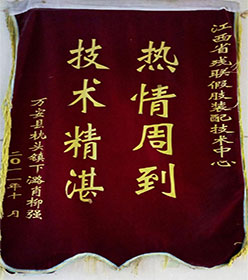 江西省残联假肢装配技术中心
热情周到
技术精湛
万安县枕头镇下潞肖柳强
二〇一一年十一月